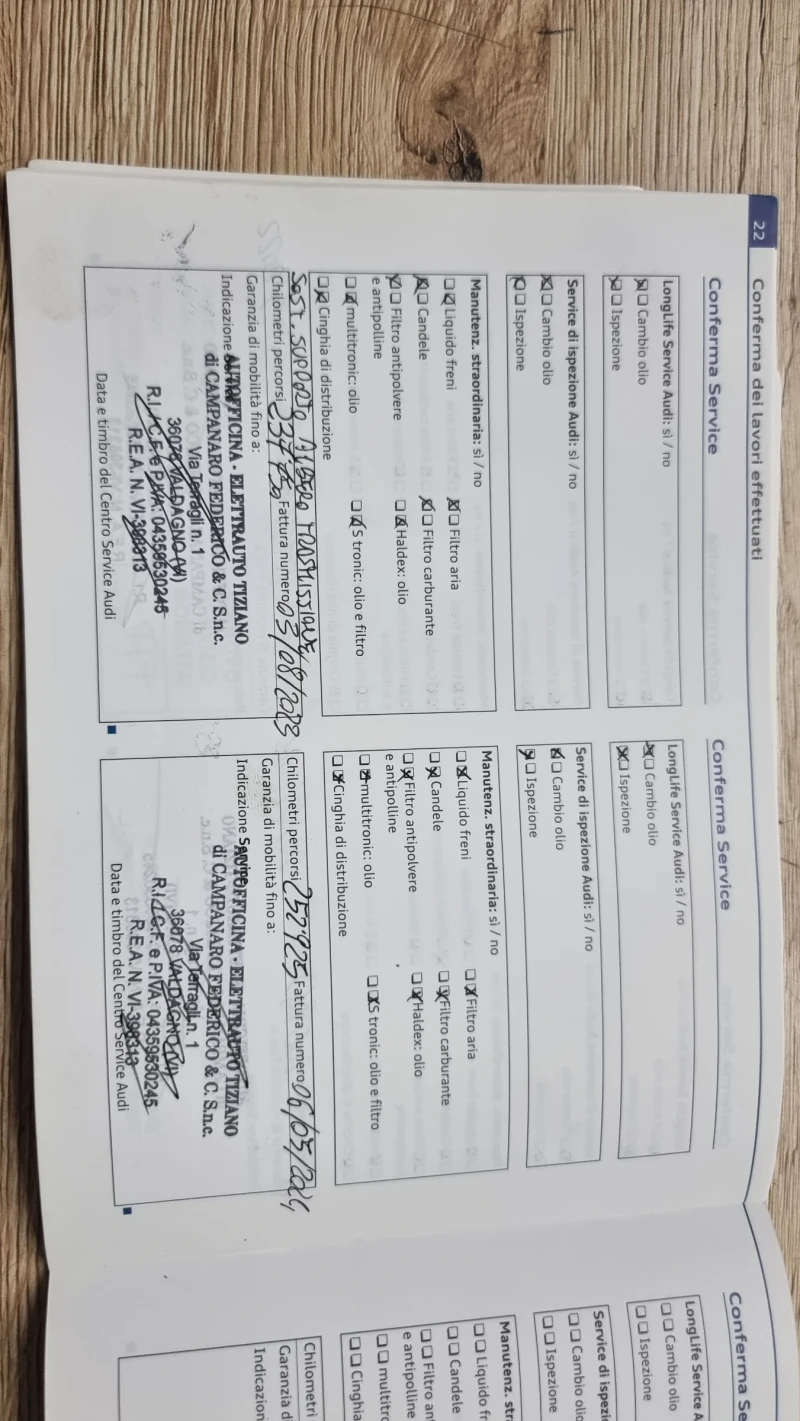 22
Conferma dei lavori effettuati
Conferma Service
LongLife Service Audi: sì / no
Cambio olio
Ispezione
Service di ispezione Audi: sì / no
Cambio olio
Ispezione
Manutenz. straordinaria: sì / no
Liquido freni
Filtro aria
Candele
Filtro carburante
Filtro antipolvere
e antipolline
Haldex: olio
multitronic: olio
S tronic: olio e filtro
Cinghia di distribuzione
SOST. SUPPORTO ALBERO TRASMISSIONE
Chilometri percorsi Fattura numero 03/08/2023
Garanzia di mobilità fino a:
Indicazione
AUTOFFICINA - ELETTRAUTO TIZIANO
di CAMPANARO FEDERICO & C. S.n.c.
Via Terragli n. 1
36078 VALDAGNO (VI)
R.I./C.F. e P.IVA: 04359530245
R.E.A. N. VI-398313
Data e timbro del Centro Service Audi
Conferma Service
LongLife Service Audi: sì / no
Cambio olio
Ispezione
Service di ispezione Audi: sì / no
Cambio olio
Ispezione
Manutenz. straordinaria: sì / no
Liquido freni
Filtro aria
Candele
Filtro carburante
Filtro antipolvere
e antipolline
Haldex: olio
multitronic: olio
S tronic: olio e filtro
Cinghia di distribuzione
Chilometri percorsi 252925 Fattura numero 06/05/2024
Garanzia di mobilità fino a:
Indicazione Service
AUTOFFICINA - ELETTRAUTO TIZIANO
di CAMPANARO FEDERICO & C. S.n.c.
Via Terragli n. 1
36078 VALDAGNO (VI)
R.I./C.F. e P.IVA: 04359530245
R.E.A. N. VI-398313
Data e timbro del Centro Service Audi
Conferma Se
LongLife Service A
Cambio olio
Ispezione
Service di ispezi
Cambio olio
Ispezione
Manutenz. str
Liquido fr
Candele
Filtro an
e antipolline
multitro
Cinghia
Chilometri
Garanzia d
Indicazion